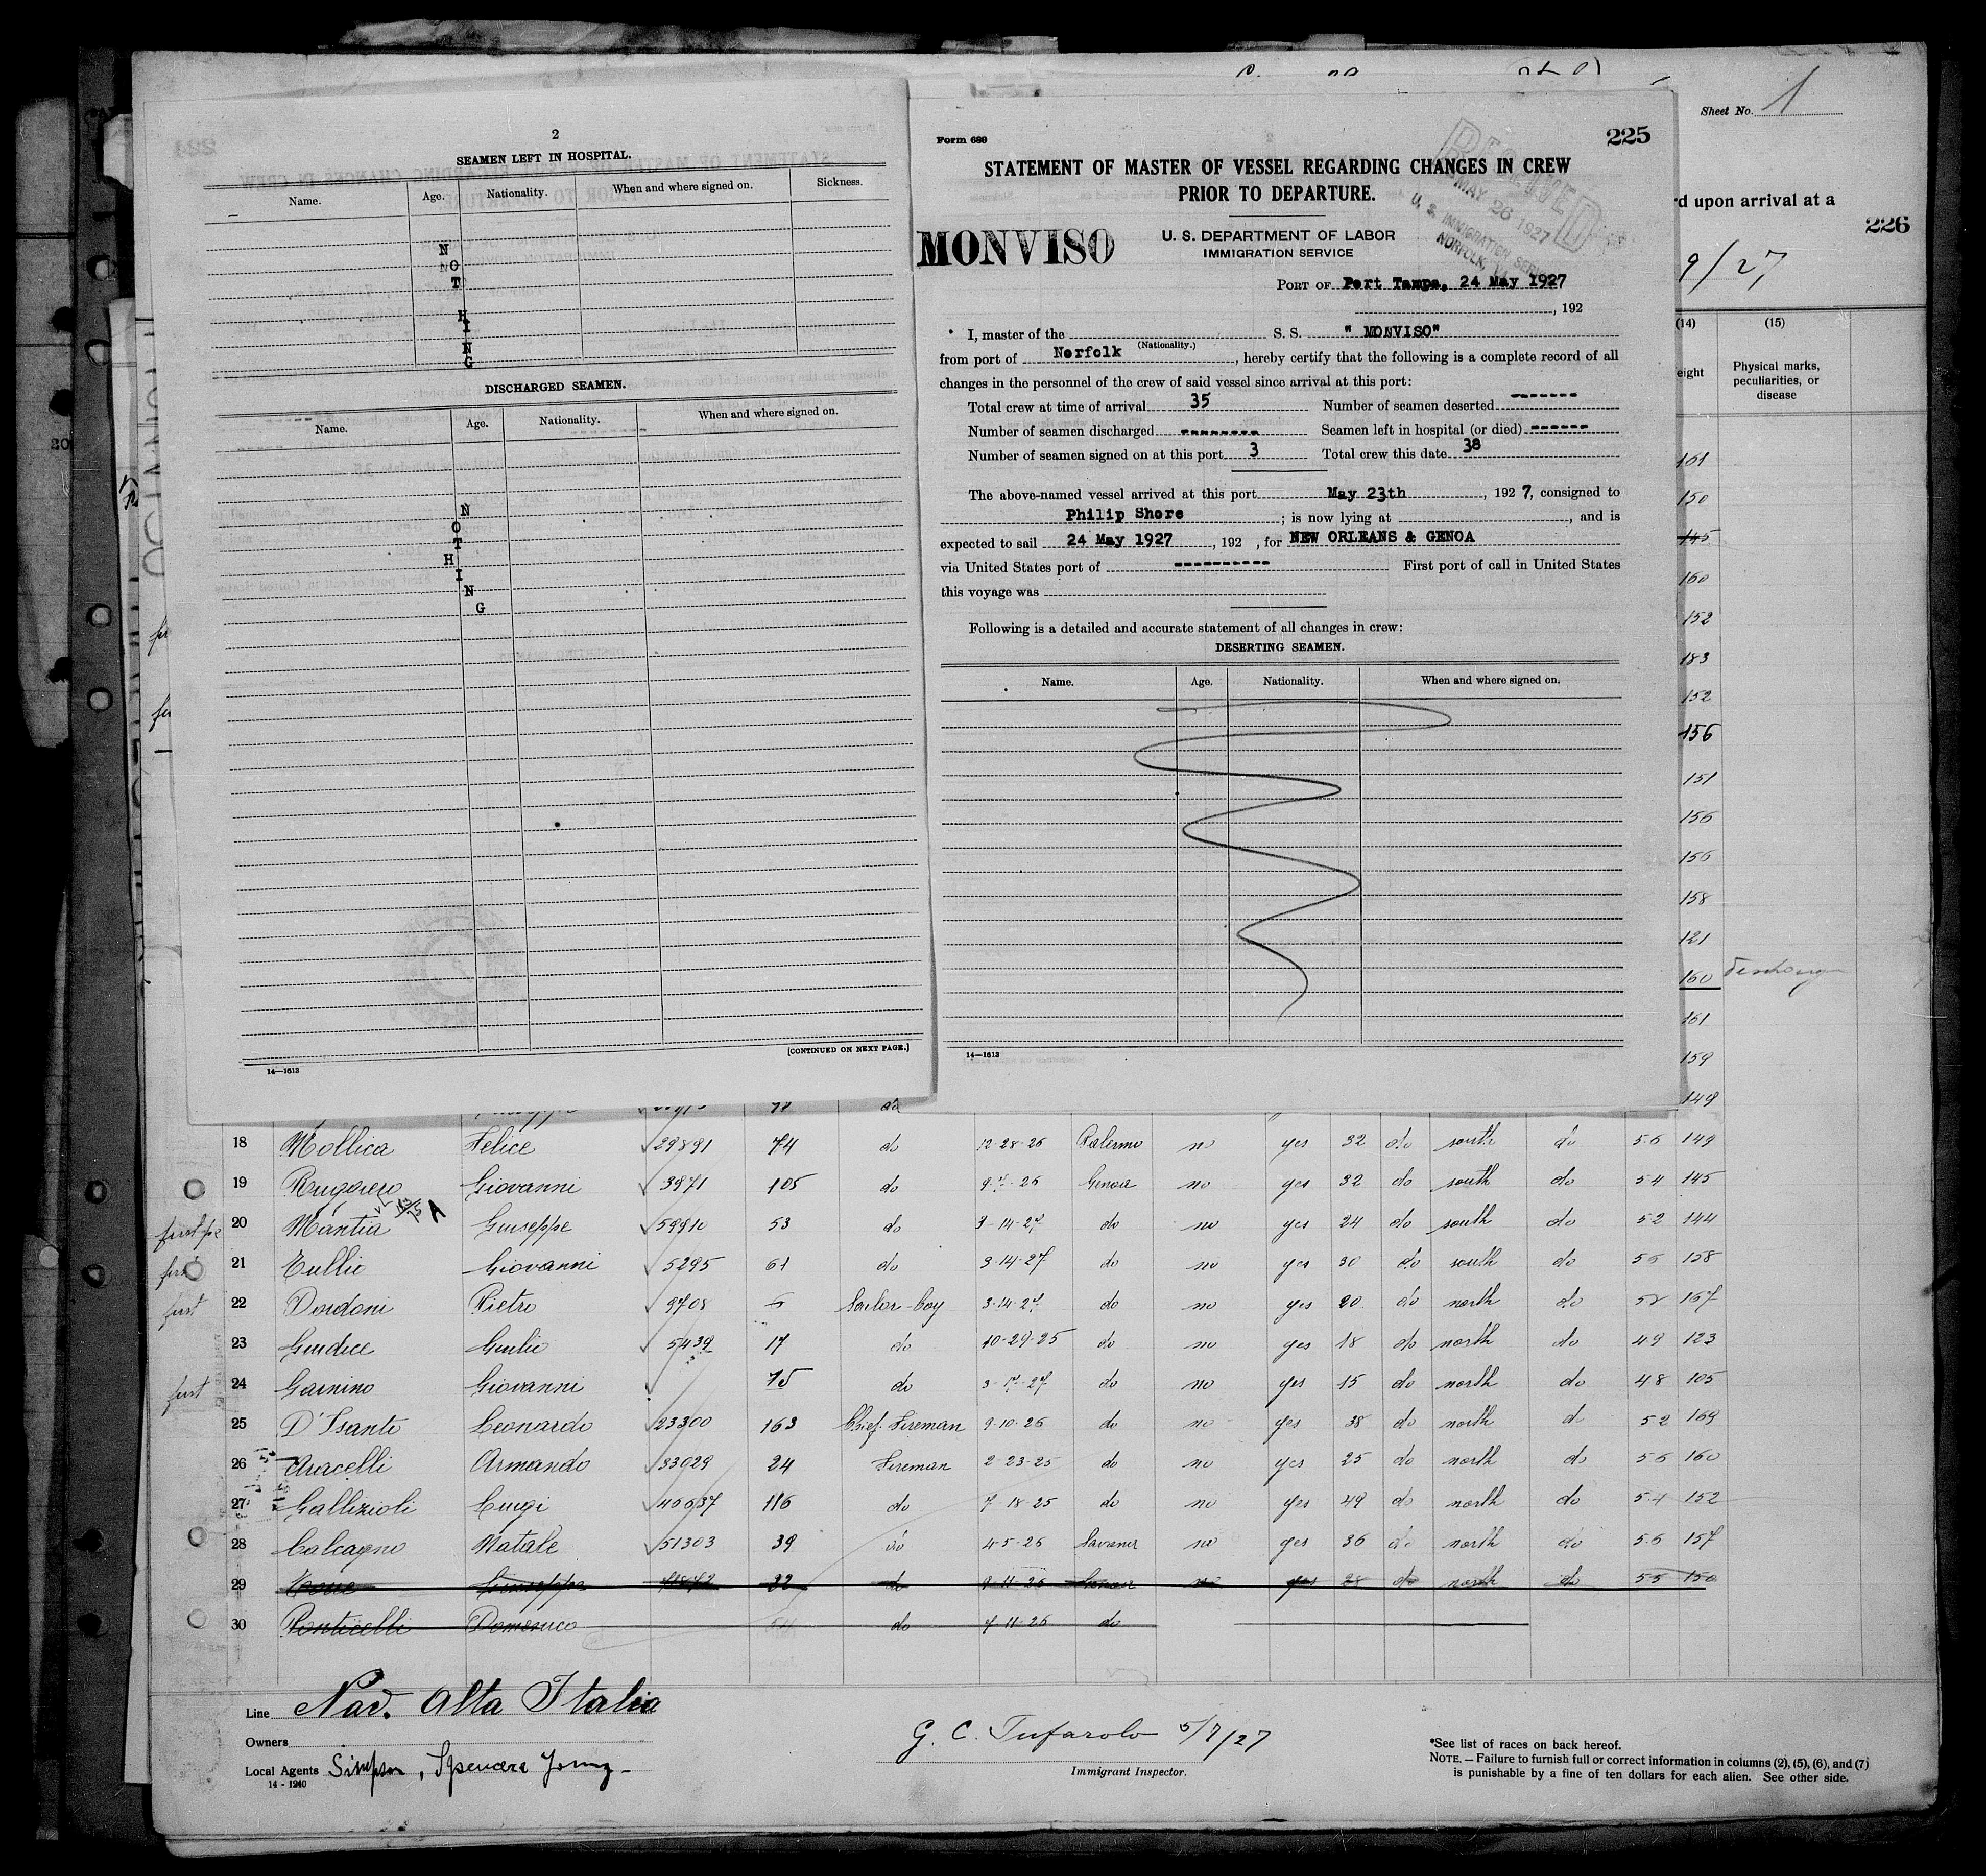 2
SEAMEN LEFT IN HOSPITAL.
Name. Age. Nationality. When and where signed on. Sickness.
N
O
T
H
I
N
G
DISCHARGED SEAMEN.
Name. Age. Nationality. When and where signed on.
N
O
T
H
I
N
G
[CONTINUED ON NEXT PAGE.]
14—1613
Form 689
225
STATEMENT OF MASTER OF VESSEL REGARDING CHANGES IN CREW
PRIOR TO DEPARTURE.
RECEIVED
MAY 26 1927
U. S. IMMIGRATION SERVICE
NORFOLK, VA.
MONVISO
U. S. DEPARTMENT OF LABOR
IMMIGRATION SERVICE
PORT OF Port Tampa, 24 May 1927
, 192
I, master of the S. S. " MONVISO"
(Nationality.)
from port of Norfolk, hereby certify that the following is a complete record of all
changes in the personnel of the crew of said vessel since arrival at this port:
Total crew at time of arrival 35 Number of seamen deserted -------
Number of seamen discharged -------- Seamen left in hospital (or died) ------
Number of seamen signed on at this port 3 Total crew this date 38
The above-named vessel arrived at this port May 23th, 192 7, consigned to
Philip Shore; is now lying at , and is
expected to sail 24 May 1927, 192 , for NEW ORLEANS & GENOA
via United States port of ---------- First port of call in United States
this voyage was
Following is a detailed and accurate statement of all changes in crew:
DESERTING SEAMEN.
Name. Age. Nationality. When and where signed on.
14—1613
Sheet No. 1
rd upon arrival at a
226
9/27
(14) (15)
eight Physical marks, peculiarities, or disease
161
150
145
160
152
183
152
156
151
156
156
158
121
160
161
159
149
18 Mollica Felice 29891 74 do 12-28-26 Palermo no yes 32 do south do 56 149
19 Ruggiero Giovanni 3971 105 do Genoa no yes 32 do south do 54 145
first 20 Mantia Giuseppe 59910 53 do 3-14-27 do no yes 24 do south do 52 144
first 21 Tullio Giovanni 5295 61 do 3-14-27 do no yes 30 do south do 56 158
first 22 Dordoni Pietro 9708 Sailor-boy 3-14-27 do no yes 20 do north do 167
23 Giudice Giulio 5439 17 do 10-29-25 do no yes 18 do north do 49 123
first 24 Garnino Giovanni 75 do do no yes 15 do north do 48 105
25 D'Isanto Leonardo 23300 163 Chief Fireman 9-10-26 do no yes 38 do north d 52 169
26 Aracelli Armando 33029 24 Fireman 2-23-25 do no yes 25 do north do 56 160
27 Gallizioli Luigi 116 do 7-18-25 do no yes 49 do north do 54 152
28 Calcagno Natale 51303 39 do 4-5-26 Savona no yes 36 do north do 56 157
29 Giuseppe 32 do 9-11-26 Genoa no yes 28 do north do 55 150
30 Ponticelli Domenico do 7-11-26 do
Line Nav. Alta Italia
Owners
Local Agents Simpson, Spence & Young
14 - 1240
G. C. Tufarolo 5/7/27
Immigrant Inspector.
*See list of races on back hereof.
NOTE.—Failure to furnish full or correct information in columns (2), (5), (6), and (7)
is punishable by a fine of ten dollars for each alien. See other side.